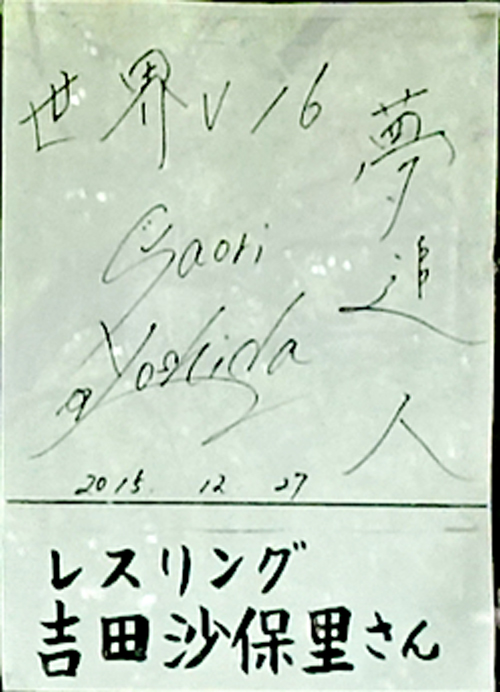 世界V16
夢追人
Saori
Yoshida
2015 12 27
レスリング
吉田沙保里さん